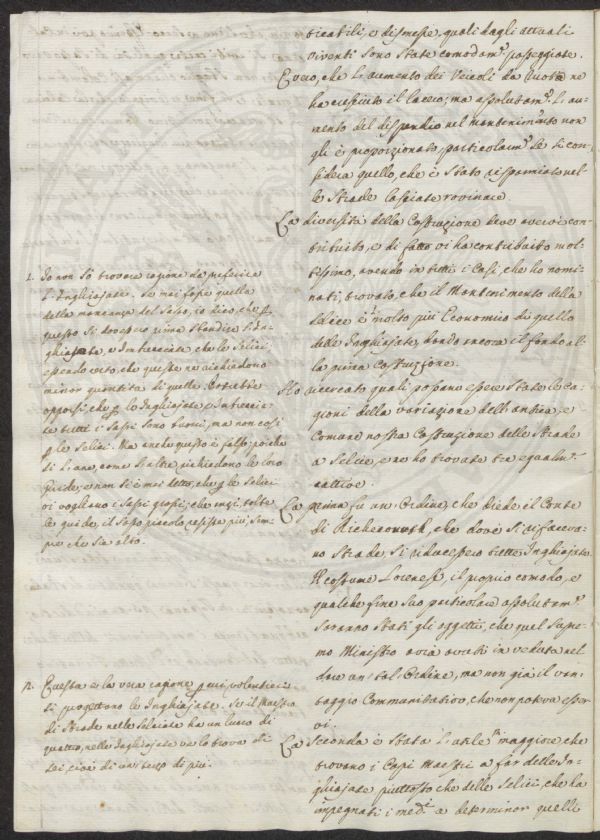 ticabili, e dismesse, quali dagli attuali
viventi sono state comodam.e passeggiate.
E vero, che l'aumento dei Veicoli da Ruota ne
ha cresciuto il lacero; ma assolutam.e l'au-
mento del dispendio nel mantenimento non
gli è proporzionato, particolarm.e se si con-
sidera quello, che è stato risparmiato nel-
le Strade lasciate rovinare.
La diversità della Costruzione deve averci con-
tribuito, e di fatto vi ha contribuito mol-
tissimo, avendo in tutti i Casi, che ho nomi-
nati, trovato, che il Mantenimento della
Selice è molto più Economico di quello
delle Inghiajate, dando ancora il fondo al-
la prima Costruzione.
Ho ricercato quali possano essere state le ca-
gioni della variazione dell'antica, e
Comune nostra Costruzione delle Strade
a Selice, e ne ho trovate tre egualm.e
cattive.
La prima fu un Ordine, che diede il Conte
di Richecourt, che dove si rifaceva-
no Strade, si riducessero tutte Inghiajate.
Il costume Lorenese, il proprio comodo, e
qualche fine suo particolare assolutam.e
saranno stati gli oggetti, che quel Supre-
mo Ministro avrà avuti in veduta nel
dare un tal Ordine, ma non già il van-
taggio Communitativo, che non poteva esser-
vi.
La seconda è stata l'utile maggiore, che
trovano i Capi Maestri a far delle In-
ghiajate piuttosto che delle Selici, che ha
impegnati i med.i a determinar quelli
1. Io non sò trovare ragione da preferire
l'Inghiajate. Se mai fosse quella
della mancanza del Sasso, io dico, che p
questo si dovesse prima sbandire l'In-
ghiajate, e Intrecciate che le Selici,
essendo certo, che queste ne richiedono
minor quantità di quelle. Potrebbe
opporsi, che p le Inghiajate, e Intreccia-
te tutti i Sassi sono buoni, ma non così
p le Selici. Ma anche questo è falso, poichè
si l'une, come l'altre richiedono le loro
Guide, e non si è mai detto, che p le Selici
vi vogliano i Sassi grossi, che anzi, tolte
le guide, il Sasso piccolo resiste più, sem-
pre che sia alto.
2. Questa è la vera ragione p cui volentieri
si progettano le Inghiajate. Se il Maestro
di Strade nelle Selciate ha un lucro di
quattro, nelle Inghiajate ve lo trova di
sei, cioè di un terzo di più.